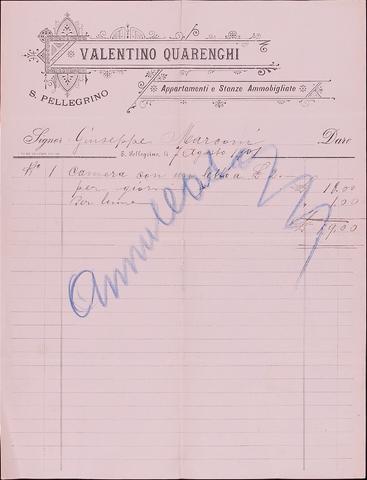 VALENTINO QUARENGHI
Appartamenti e Stanze Ammobigliate
S. PELLEGRINO
Signor Giuseppe Marconi Dare
S. Pellegrino, li 7 Agosto 1901
1 Camera con un letto a £ 2.
per giorni £ 18.00
Per lume 1.00
£ 19.00
Annullato